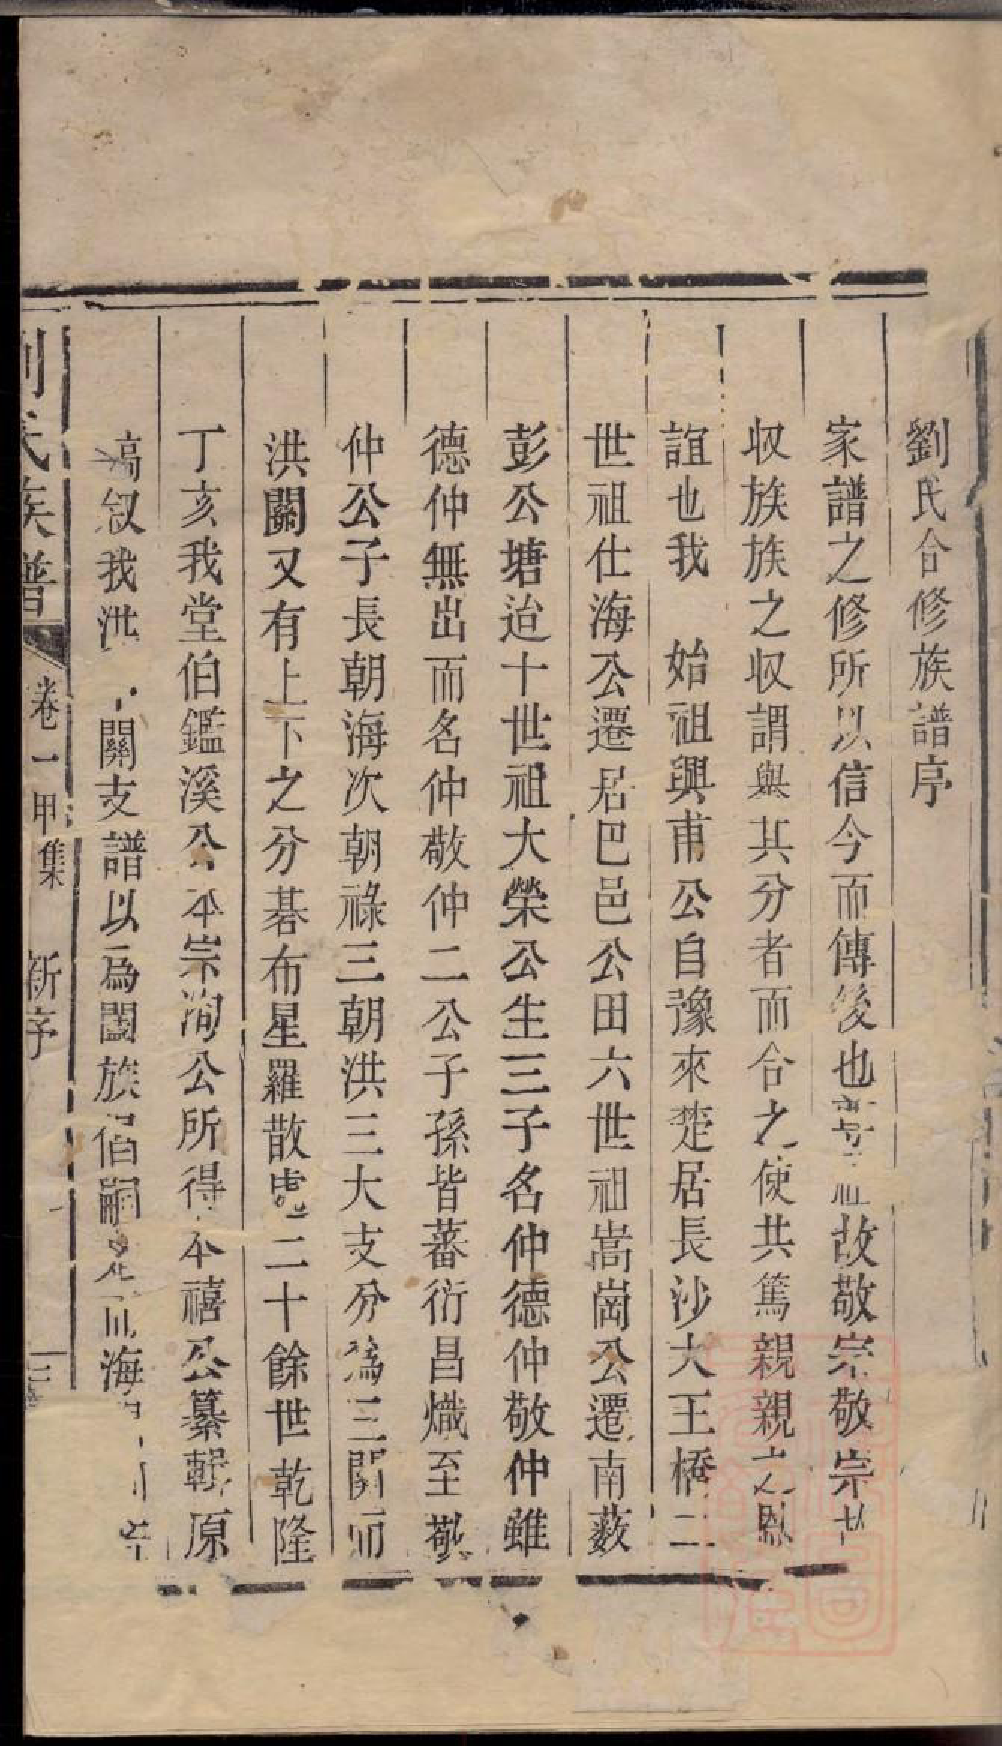 劉氏合修族譜序
家譜之修所以信今而傳後也尊祖故敬宗敬宗故
収族族之収謂與其分者而合之使共篤親親之
誼也我 始祖興甫公自豫來楚居長沙大王橋二
世祖仕海公遷居巴邑公田六世祖嵩崗公遷南薮
彭公塘迨十世祖大榮公生三子名仲德仲敬仲雖
德仲無出而名仲敬仲二公子孫皆蕃衍昌熾至敬
仲公子長朝海次朝祿三朝洪三大支分為三關而
洪關又有上下之分碁布星羅散處二十餘世乾隆
丁亥我堂伯鑑溪公本崇洵公所得本禧公纂輯原
稿叙我洪 關支譜以為闔族倡嗣是 海
劉氏族譜
卷一甲集 新序 三